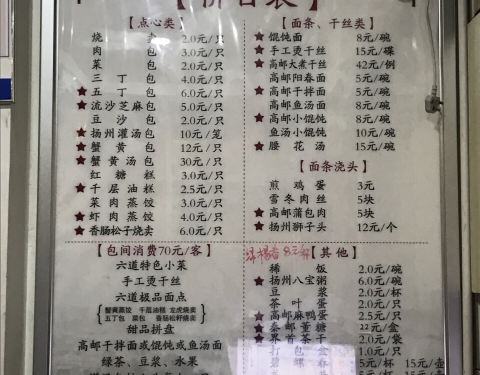 价目表
【点心类】
烧 卖 2.0元/只
肉 包 3.0元/只
菜 包 2.0元/只
三 丁 包 4.0元/只
★五 丁 包 6.0元/只
★流沙芝麻包 5.0元/只
豆 沙 包 2.0元/只
★扬州灌汤包 10元/笼
★蟹 黄 包 12元/只
★蟹黄汤包 30元/只
红 糖 糕 3.0元/只
★千层油糕 2.5元/只
菜肉蒸饺 3.0元/只
★虾肉蒸饺 4.0元/只
★香肠松子烧卖 6.0元/只
【面条、干丝类】
★馄饨面 8元/碗
★手工烫干丝 15元/碟
★高邮大煮干丝 42元/例
高邮阳春面 5元/碗
★高邮干拌面 5元/碗
高邮鱼汤面 8元/碗
★高邮小馄饨 8元/碗
鱼汤小馄饨 10元/碗
★腰花汤 15元/碗
【面条浇头】
煎鸡蛋 3元
雪冬肉丝 5块
★高邮蒲包肉 5块
★扬州狮子头 12元/个
【包间消费70元/客】
六道特色小菜
手工烫干丝
六道极品面点
蟹黄蒸饺 千层油糕 龙虎烧卖
五丁包 菜包 香肠松籽烧卖
甜品拼盘
高邮干拌面或馄饨或鱼汤面
绿茶、豆浆、水果
【其他】
稀 饭 2.0元/碗
★扬州八宝粥 6.0元/碗
豆 浆 2.0元/杯
茶 叶 蛋 2.0元/只
★高邮麻鸭蛋 2.0元/只
★秦邮董糖 22元/盒
★界首茶干 2.0元/袋
打 包 盒 1.0元/只
5元/杯 15元/壶